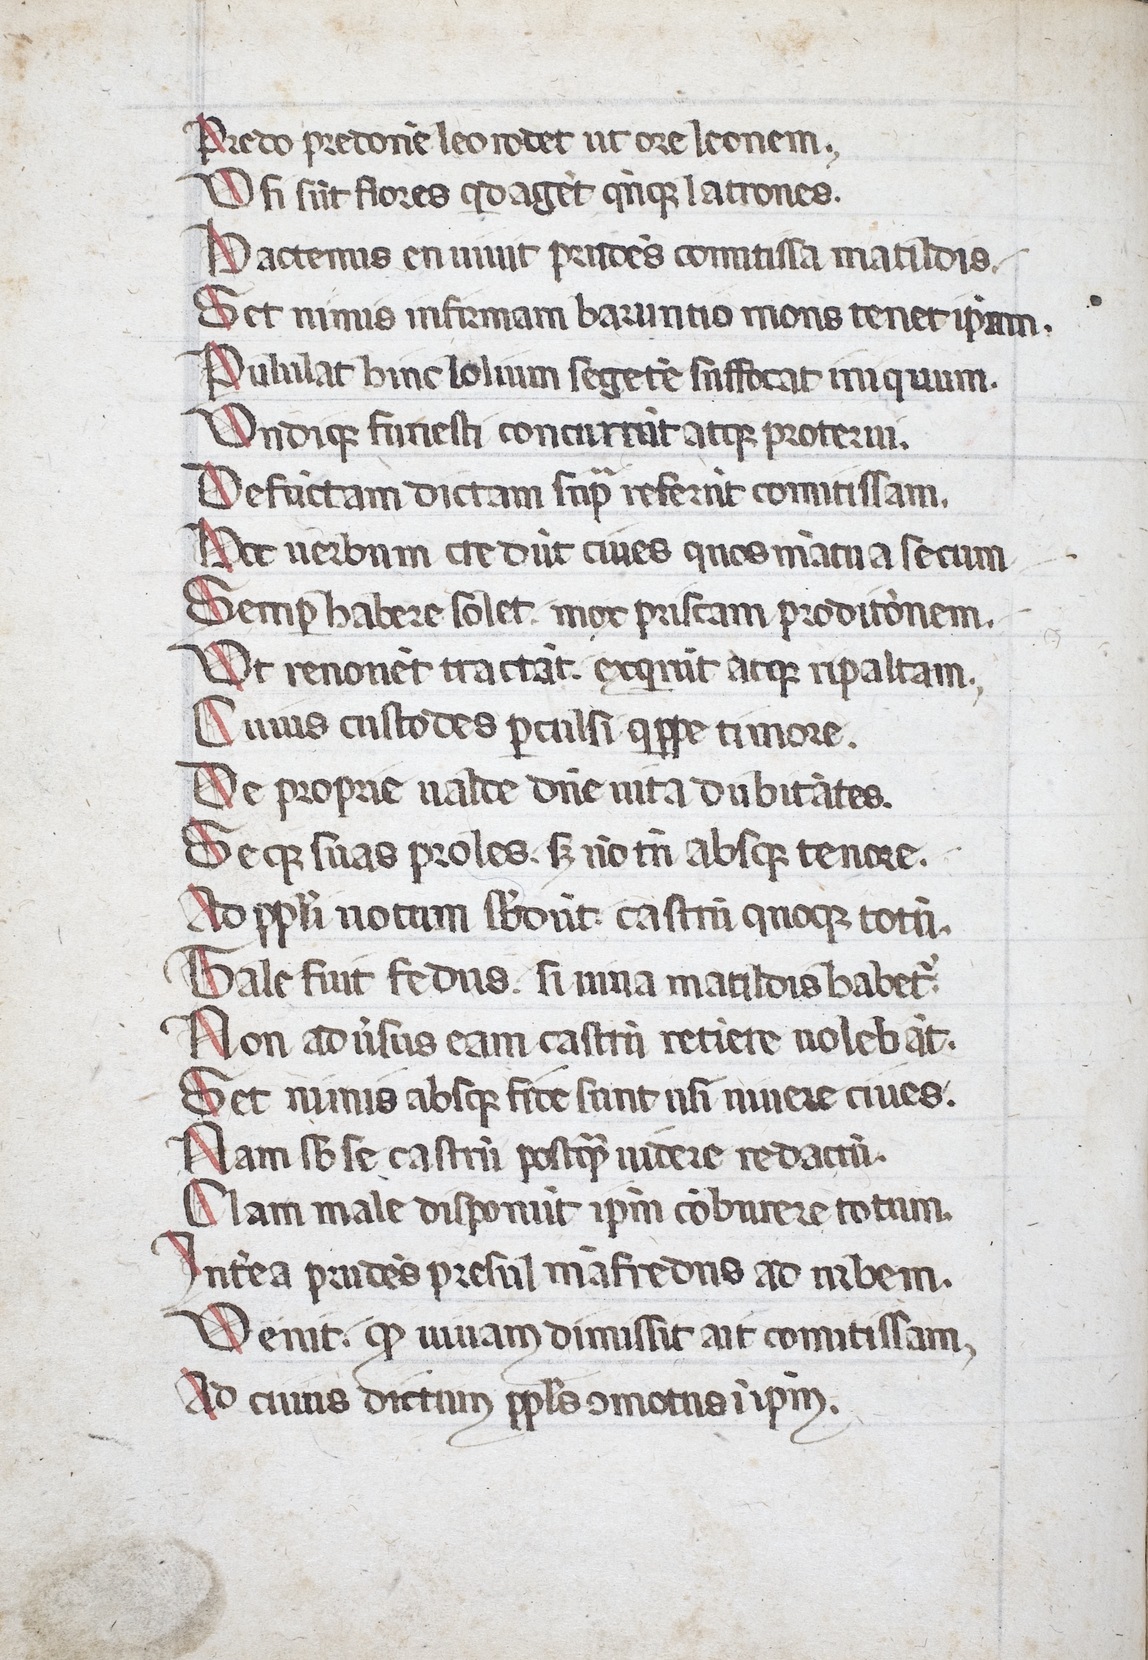 Predo predonē leo rodet ut ore leonem.,
V si sūt flores qd agēt qīque latrones.
Hactenus en uiuit prudēs comitissa matildis.
Set nimis infirmam baruntio mons tenet ipsam.
Pululat hinc lolium segetē suffocat iniquum.
Vndique funesti concurrūt atque proterui.
Defūctam dictam supra referūt comitissam.
Hoc uerbum credūt ciues quos mātua secum
Semper habere solet. mox priscam proditōnem.
Vt renouēt tractāt. exquirūt atque ripaltam.,
Cuius custodes perculsi quippe timore.
De proprie ualde dn̄e uita dubitātes.
Seque suas proles. sed nō tn̄ absque tenore.
Ad ppl̄i uotum sb̄dūt castrū quoque totū.
Tale fuit fedus. si uiua matildis habetur.
Non aduersus eam castrū retinere uolebāt.
Set nimis absque fide sunt uisi uiuere ciues.
Nam sb̄ se castrū postquam uidere redactū.
Clam male disponūt ipm̄ cōburere totum.
Interea prudēs presul māfredus ad urbem.
Venit. quod uiuam dimissit ait comitissam,
Ad cuius dictum ppl̄s ↄmotus ī ipm̄.